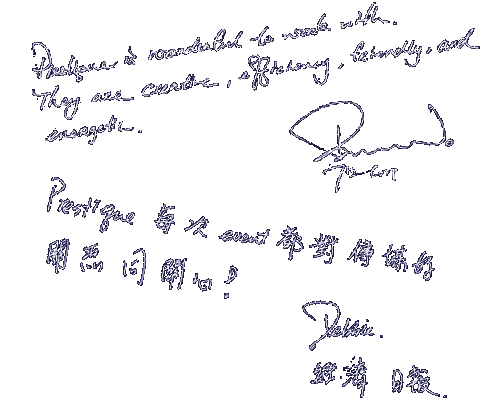 is wonderful to work with.
They are creative, efficiency, friendly, and
energetic.
Prestique 每次 event 都對傳媒好
關照同關心!
Debbie.
經濟日報.